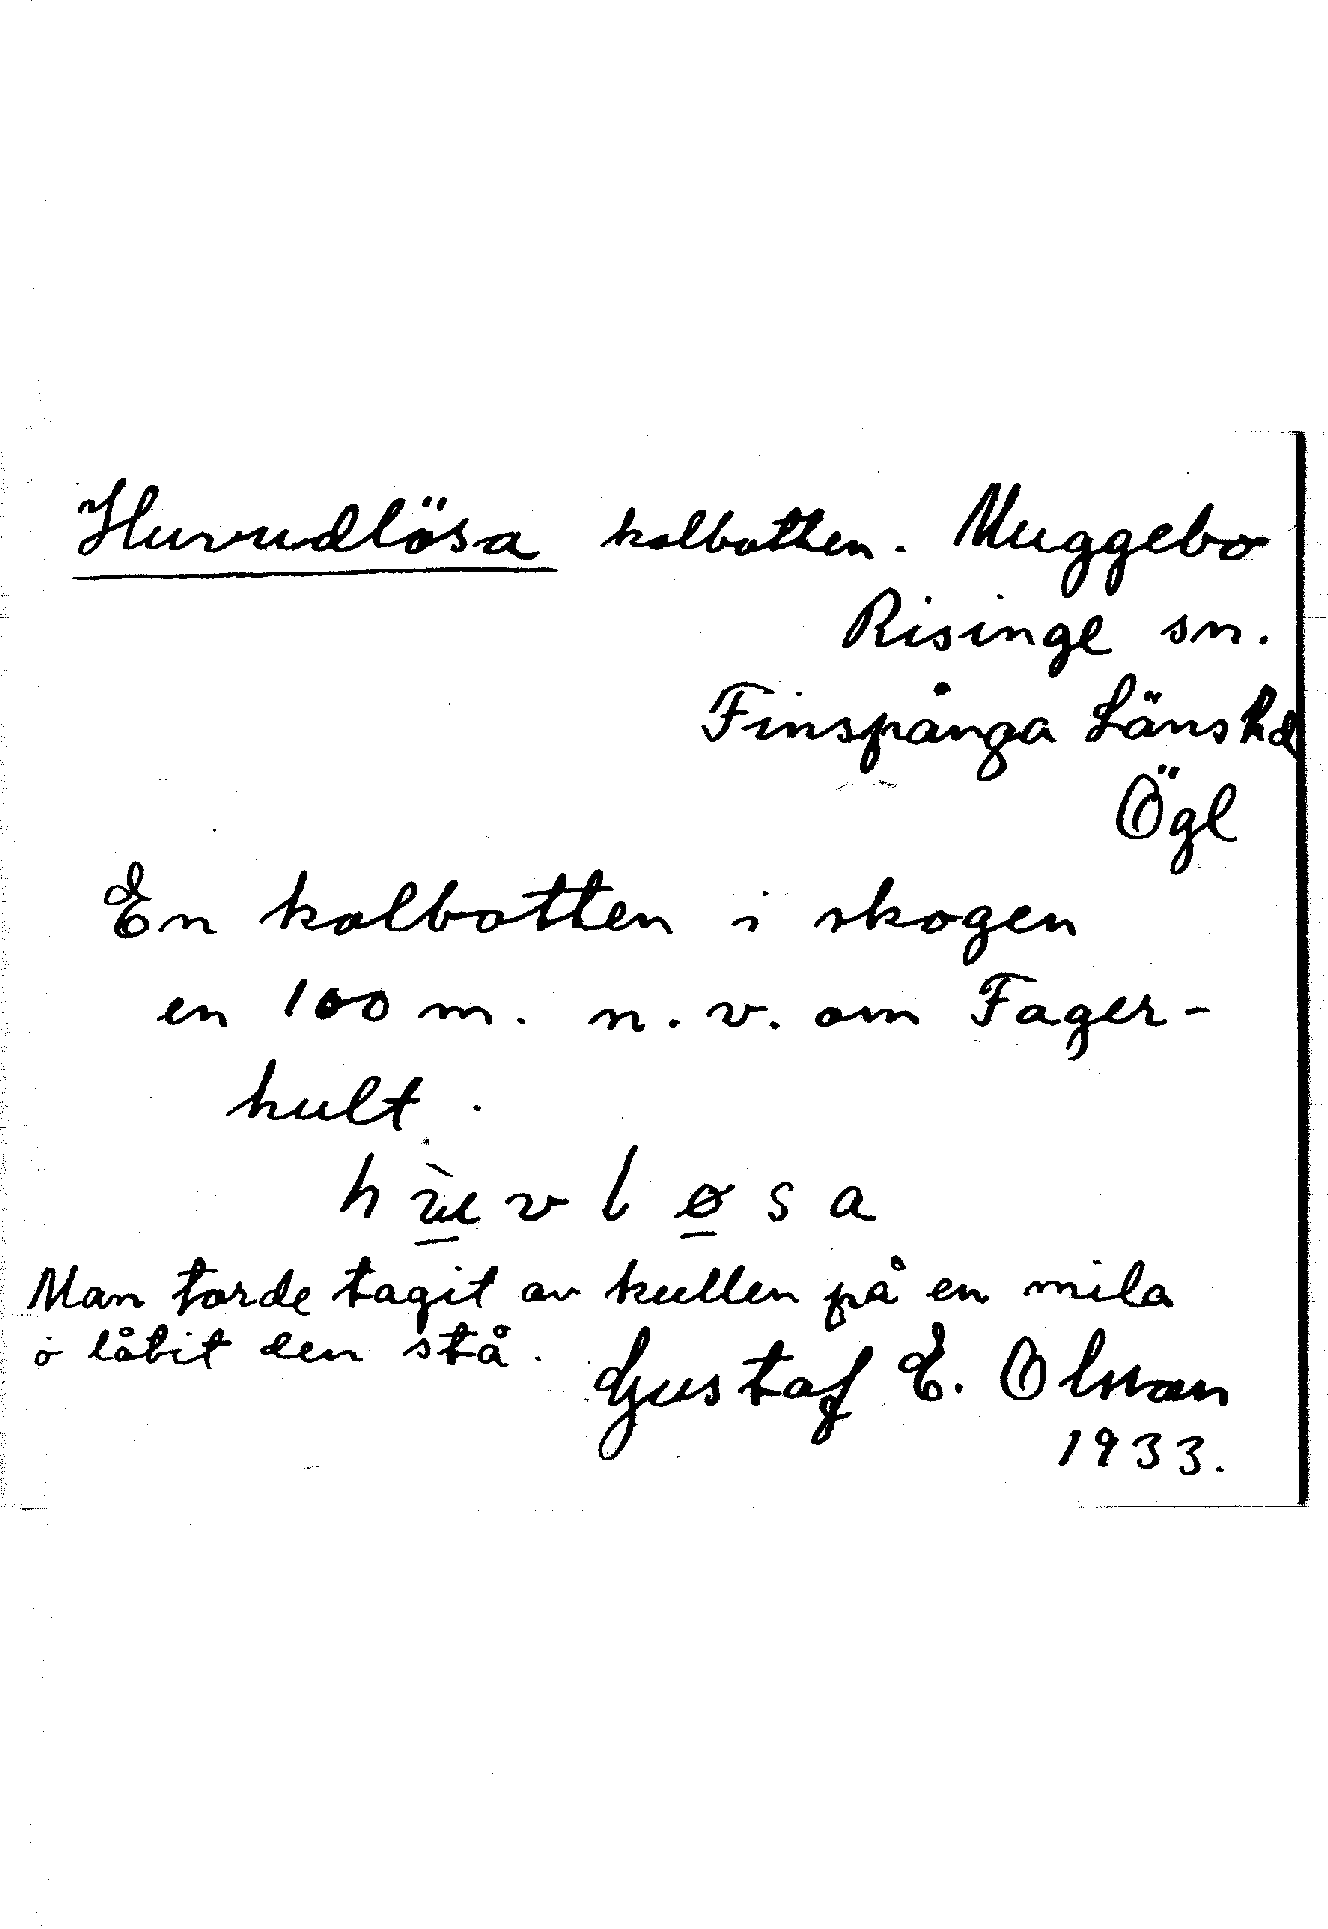 Huvudlösa kolbotten. Muggebo
Risinge sn.
Finspånga Läns hd
Ögl
En kolbotten i skogen
en 100 m. n. v. om Fager-
hult.
h v l ø s a
Man torde tagit av kullen på en mila
o låtit den stå.
Gustaf E. Olsson
1933.